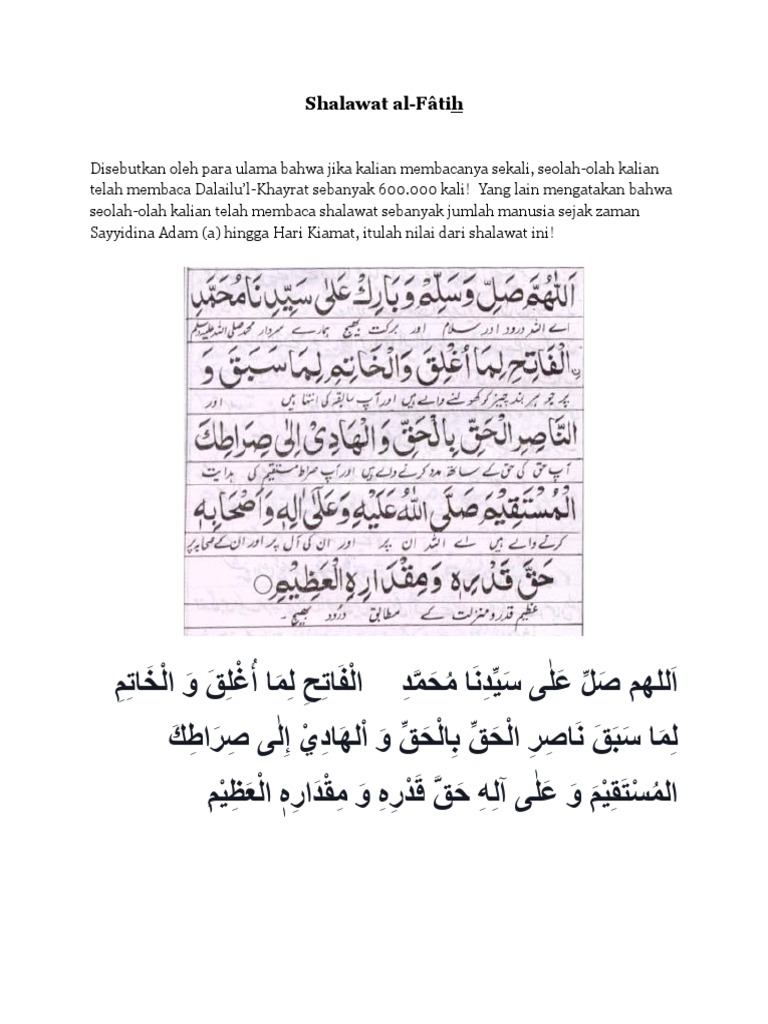 Shalawat al-Fâtih
Disebutkan oleh para ulama bahwa jika kalian membacanya sekali, seolah-olah kalian
telah membaca Dalailu’l-Khayrat sebanyak 600.000 kali!  Yang lain mengatakan bahwa
seolah-olah kalian telah membaca shalawat sebanyak jumlah manusia sejak zaman
Sayyidina Adam (a) hingga Hari Kiamat, itulah nilai dari shalawat ini!
اَللّٰهُمَّ صَلِّ وَسَلِّمْ وَبَارِكْ عَلٰى سَيِّدِنَا مُحَمَّدِ
اے اللہ درود اور سلام اور برکت بھیج ہمارے سردار محمد صلی اللہ علیہ وسلم
نِ الْفَاتِحِ لِمَا اُغْلِقَ وَالْخَاتِمِ لِمَا سَبَقَ وَ
پر جو ہر بند چیز کو کھولنے والے ہیں اور آپ سابقہ کی انتہا ہیں اور
النَّاصِرِ الْحَقِّ بِالْحَقِّ وَالْهَادِیْ اِلٰى صِرَاطِكَ
آپ حق کی حق کے ساتھ مدد کرنے والے ہیں اور آپ صراط مستقیم کی ہدایت
الْمُسْتَقِيْمِ صَلَّى اللهُ عَلَيْهِ وَعَلٰٓى اٰلِهٖ وَاَصْحَابِهٖ
کرنے والے ہیں اے اللہ ان پر اور ان کی آل پر اور ان کے صحابہ پر
حَقَّ قَدْرِهٖ وَمِقْدَارِهِ الْعَظِيْمِ
عظیم قدر و منزلت کے مطابق درود بھیج۔
اَللهم صَلِّ عَلٰى سَيِّدِنَا مُحَمَّدِ الْفَاتِحِ لِمَا أُغْلِقَ وَ الْخَاتِمِ
لِمَا سَبَقَ نَاصِرِ الْحَقِّ بِالْحَقِّ وَ اْلهَادِيْ إِلٰى صِرَاطِكَ
المُسْتَقِيْمَ وَ عَلٰى آلِهِ حَقَّ قَدْرِهِ وَ مِقْدَارِهِ الْعَظِيْم